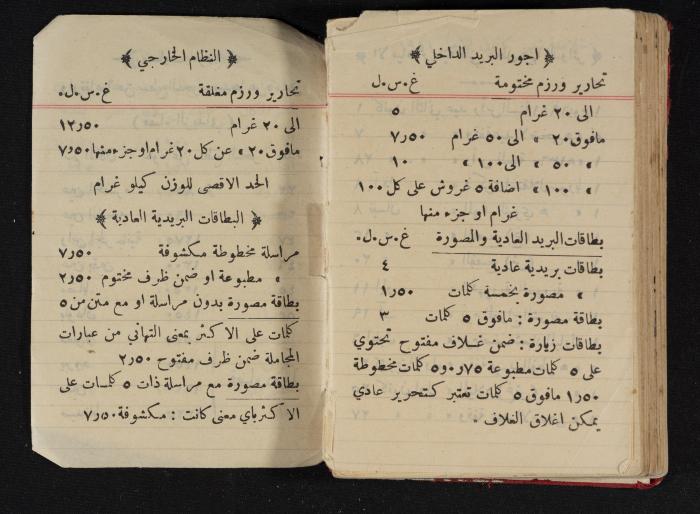 ﴿ اجور البريد الداخلي ﴾
تحارير ورزم مختومة غ.س.ل
الى ٢٠ غرام ٥
مافوق ٢٠ » الى ٥٠ غرام ٧٫٥٠
» ٥٠ » الى ١٠٠ » ١٠
» ١٠٠ » اضافة ٥ غروش على كل ١٠٠
غرام او جزء منها
بطاقات البريد العادية والمصورة غ.س.ل.
بطاقات بريدية عادية ٤
» مصورة بخمسة كلمات ١٫٥٠
بطاقة مصورة : مافوق ٥ كلمات ٣
بطاقات زيارة : ضمن غلاف مفتوح تحتوي
على ٥ كلمات مطبوعة ٠٫٧٥ و ٥ كلمات مخطوطة
١٫٥٠ مافوق ٥ كلمات تعتبر كتحرير عادي
يمكن اغلاق الغلاف .
﴿ النظام الخارجي ﴾
تحارير ورزم مغلفة غ.س.ل.
الى ٢٠ غرام ١٢٫٥٠
مافوق ٢٠ » عن كل ٢٠ غرام او جزء منها ٧٫٥٠
الحد الاقصى للوزن كيلو غرام
﴿ البطاقات البريدية العادية ﴾
مراسلة مخطوطة مكشوفة ٧٫٥٠
» مطبوعة او ضمن ظرف مختوم ٢٫٥٠
بطاقة مصورة بدون مراسلة او مع متن من ٥
كلمات على الاكثر بمعنى التهاني من عبارات
المجاملة ضمن ظرف مفتوح ٢٫٥٠
بطاقة مصورة مع مراسلة ذات ٥ كلمسات على
الاكثر باي معنى كانت : مكشوفة ٧٫٥٠